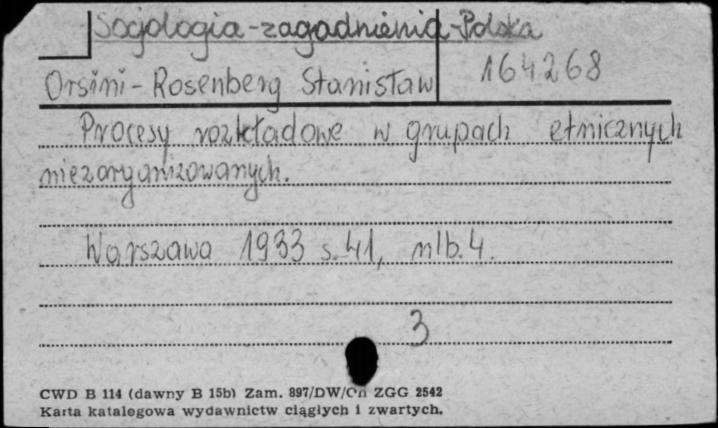 Socjologia-zagadnienia-Polska
Orsini-Rosenberg Stanisław 164268
Procesy rozkładowe w grupach etnicznych
niezorganizowanych.
Warszawa 1933 s. 41, nlb. 4.
3
CWD B 114 (dawny B 15b) Zam. 897/DW/ ZGG 2542
Karta katalogowa wydawnictw ciągłych i zwartych.